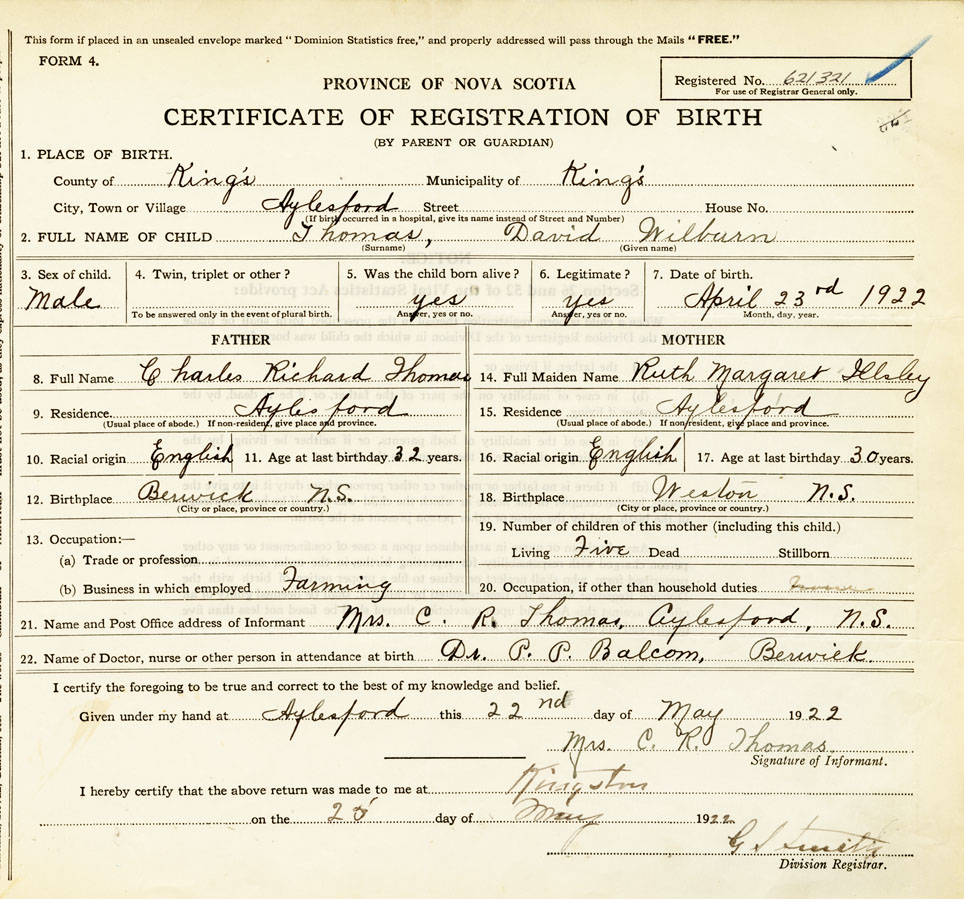 This form if placed in an unsealed envelope marked "Dominion Statistics free," and properly addressed will pass through the Mails "FREE."
FORM 4.
Registered No. 621321
For use of Registrar General only.
PROVINCE OF NOVA SCOTIA
CERTIFICATE OF REGISTRATION OF BIRTH
(BY PARENT OR GUARDIAN)
1. PLACE OF BIRTH.
County of King's Municipality of King's
City, Town or Village Aylesford Street House No.
(If birth occurred in a hospital, give its name instead of Street and Number)
2. FULL NAME OF CHILD Thomas, David Wilburn
(Surname) (Given name)
3. Sex of child. 4. Twin, triplet or other? 5. Was the child born alive? 6. Legitimate? 7. Date of birth.
Male yes yes April 23rd 1922
To be answered only in the event of plural birth. Answer, yes or no. Answer, yes or no. Month, day, year.
FATHER MOTHER
8. Full Name Charles Richard Thomas 14. Full Maiden Name Ruth Margaret Illsley
9. Residence. Aylesford 15. Residence Aylesford
(Usual place of abode.) If non-resident, give place and province. (Usual place of abode.) If non-resident, give place and province.
10. Racial origin English 11. Age at last birthday 32 years. 16. Racial origin English 17. Age at last birthday 30 years.
12. Birthplace Berwick N.S. 18. Birthplace Weston N.S.
(City or place, province or country.) (City or place, province or country.)
13. Occupation:— 19. Number of children of this mother (including this child.)
(a) Trade or profession Living Five Dead Stillborn
(b) Business in which employed Farming 20. Occupation, if other than household duties
21. Name and Post Office address of Informant Mrs. C. R. Thomas, Aylesford, N.S.
22. Name of Doctor, nurse or other person in attendance at birth Dr. P. P. Balcom, Berwick
I certify the foregoing to be true and correct to the best of my knowledge and belief.
Given under my hand at Aylesford this 22nd day of May 1922
Mrs. C. R. Thomas
Signature of Informant.
I hereby certify that the above return was made to me at Kingston
on the 25 day of May 1922
G S Smith
Division Registrar.